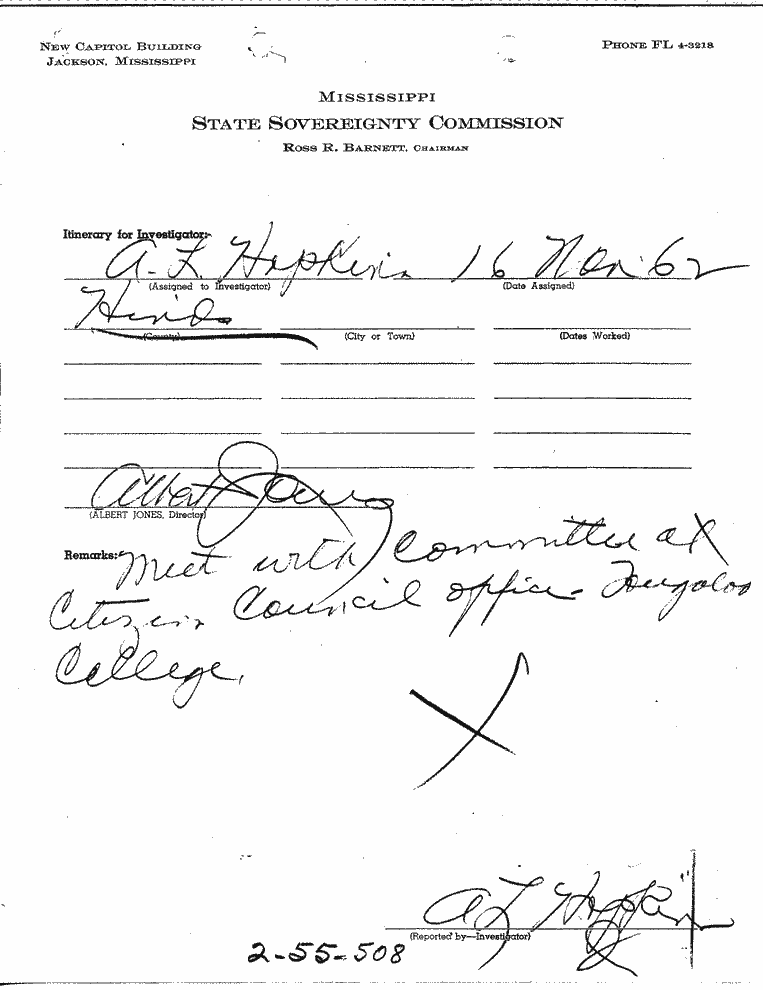 NEW CAPITOL BUILDING
JACKSON, MISSISSIPPI
PHONE FL 4-3218
MISSISSIPPI
STATE SOVEREIGNTY COMMISSION
ROSS R. BARNETT, CHAIRMAN
Itinerary for Investigator:
A. L. Hopkins 16 Nov 62
(Assigned to Investigator) (Date Assigned)
Hinds
(County) (City or Town) (Dates Worked)
Albert Jones
(ALBERT JONES, Director)
Remarks: Meet with committee at
Citizens Council office - Tougaloo
College.
X
A L Hopkins
(Reported by—Investigator)
2-55-508